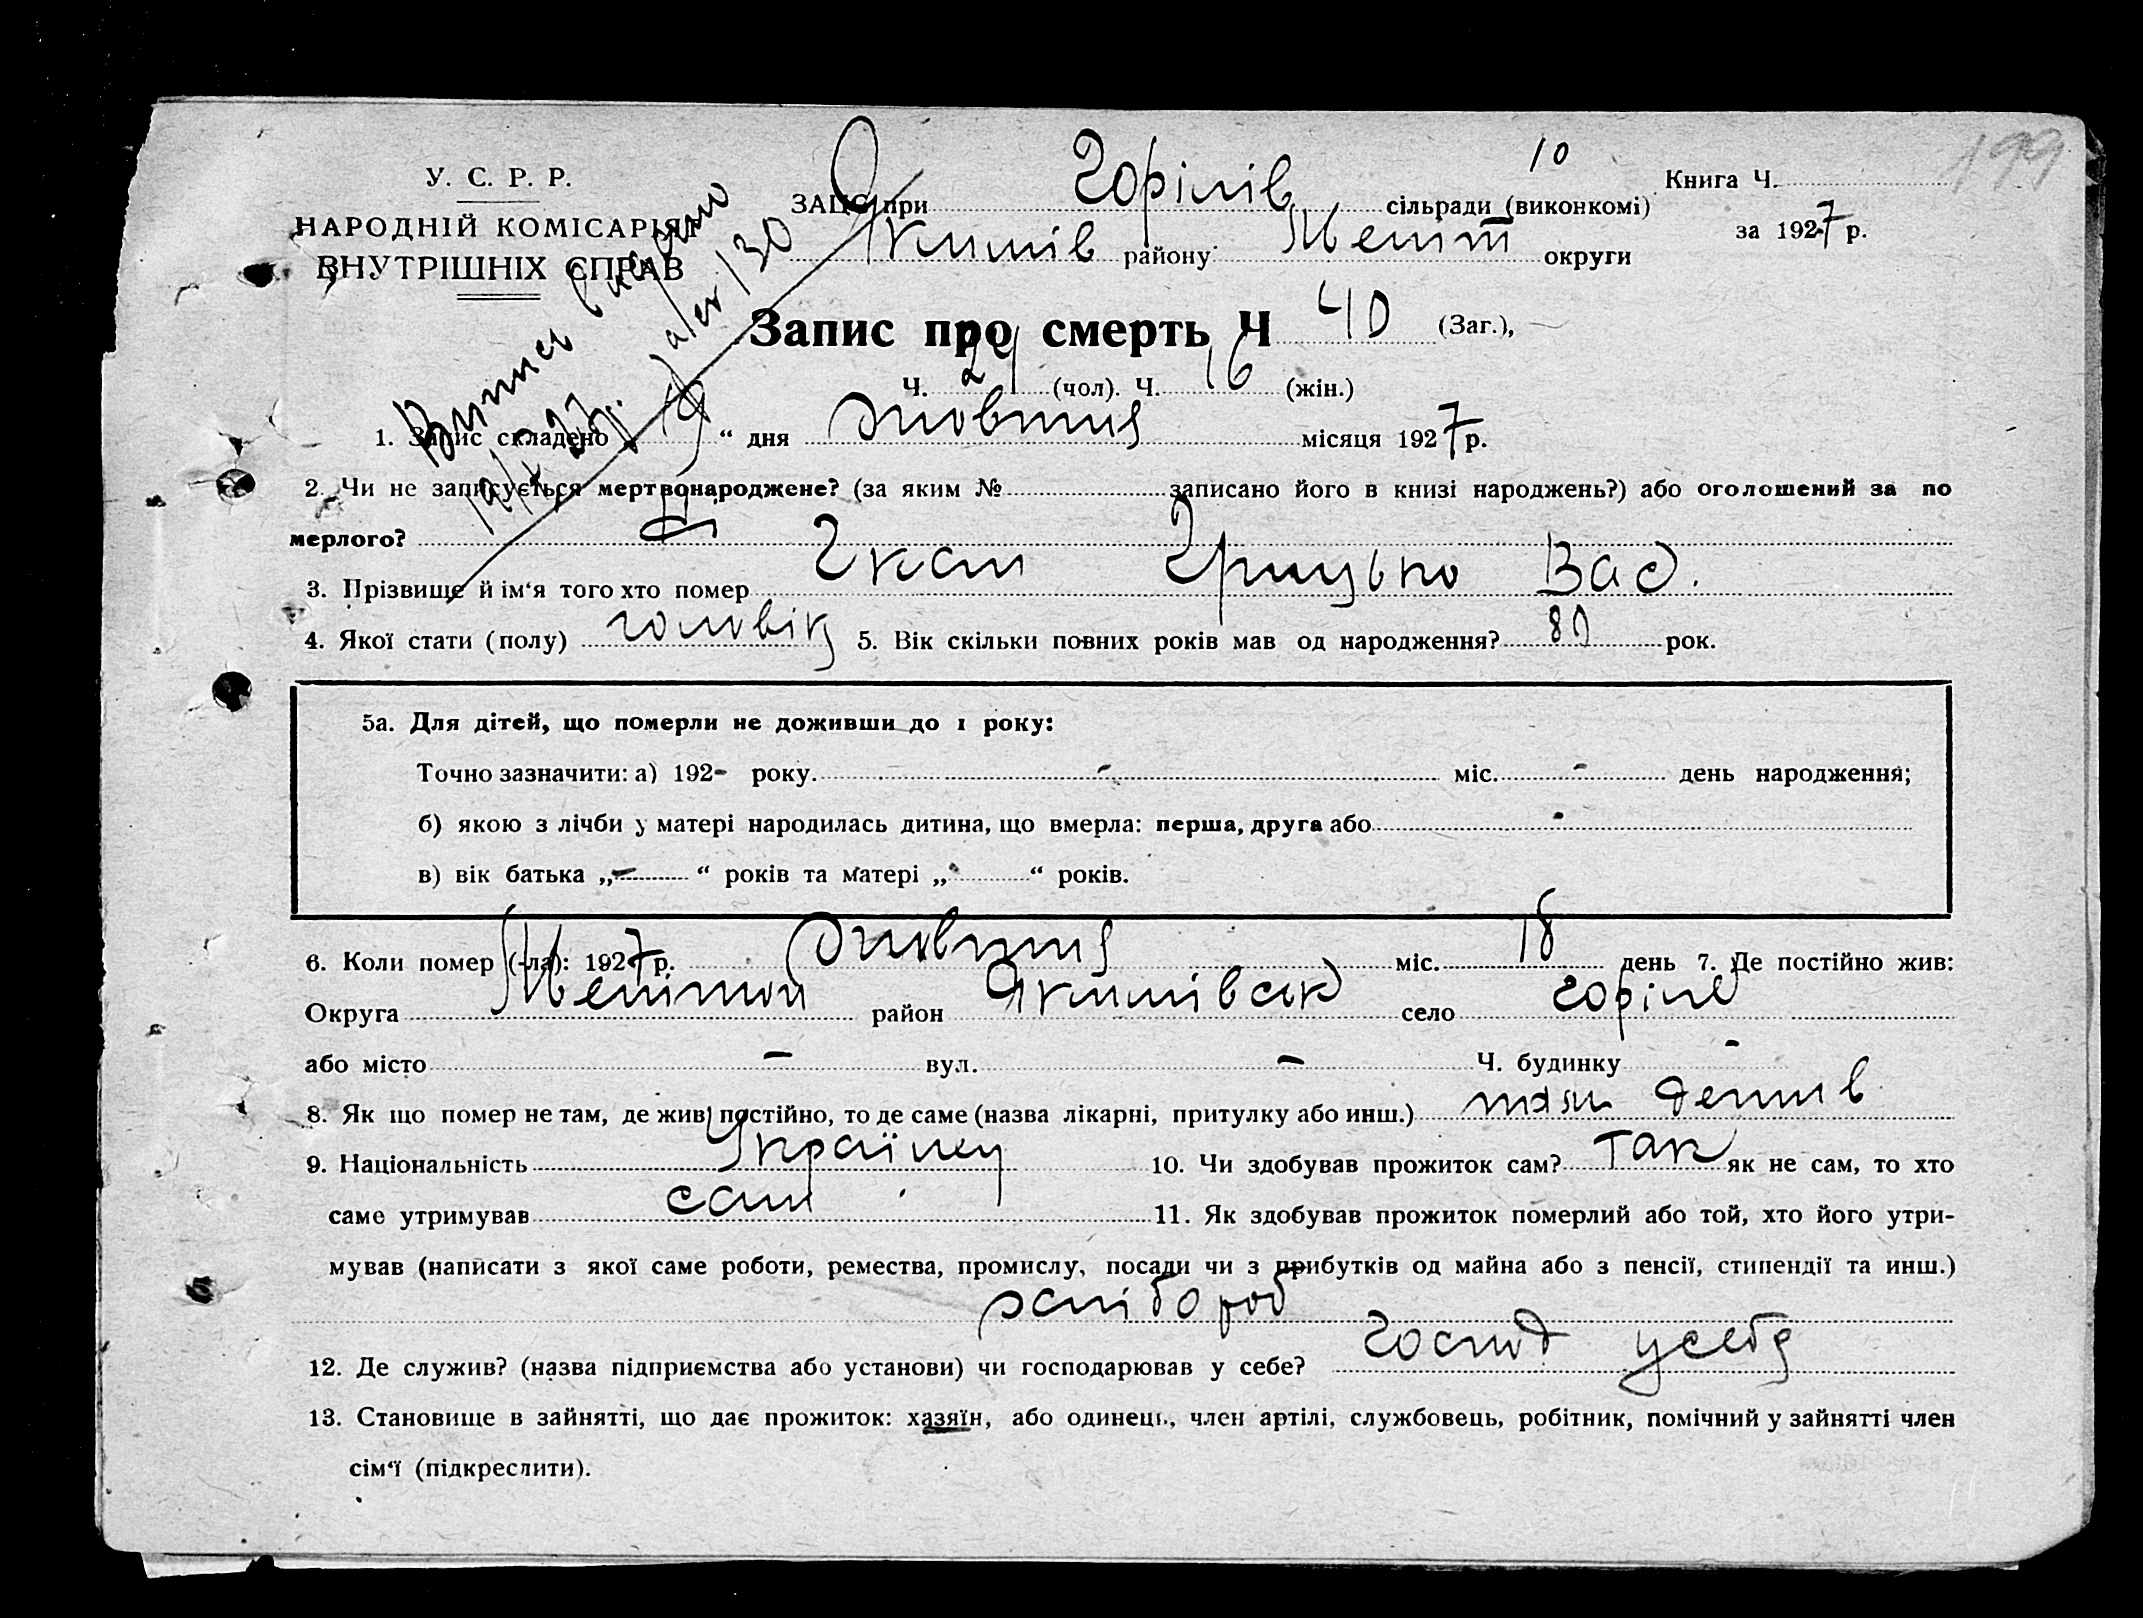 199
У. С. Р. Р.
НАРОДНІЙ КОМІСАРІЯТ
ВНУТРІШНІХ СПРАВ
ЗАЦС при Горілів сільради (виконкомі) 10
Якимів району Меліт округи
Книга Ч.
за 1927 р.
Випись видано
19/X 27 р.
Запис про смерть Ч 40 (Заг.),
Ч. 24 (чол). Ч. 16 (жін.)
1. Запис складено „19“ дня Жовтня місяця 1927 р.
2. Чи не записується мертвонароджене? (за яким № записано його в книзі народжень?) або оголошений за по
мерлого? Ні
3. Прізвище й ім‘я того хто помер Ткач Грицько Вас.
4. Якої стати (полу) чоловік 5. Вік скільки повних років мав од народження? 80 рок.
5а. Для дітей, що померли не доживши до 1 року:
Точно зазначити: а) 192- року. - міс. - день народження;
б) якою з лічби у матері народилась дитина, що вмерла: перша, друга або -
в) вік батька „-“ років та матері „-“ років.
6. Коли помер (-ла): 1927 р. Жовтня міс. 18 день 7. Де постійно жив:
Округа Меліттой район Якимівськ село Горіле
або місто - вул. - Ч. будинку -
8. Як що помер не там, де жив постійно, то де саме (назва лікарні, притулку або инш.) там де жив
9. Національність Українец 10. Чи здобував прожиток сам? Так як не сам, то хто
саме утримував сам 11. Як здобував прожиток померлий або той, хто його утри-
мував (написати з якої саме роботи, ремества, промислу, посади чи з прибутків од майна або з пенсії, стипендії та инш.)
хлібороб
12. Де служив? (назва підприємства або установи) чи господарював у себе? Господ усебя
13. Становище в зайнятті, що дає прожиток: хазяїн, або одинець, член артілі, службовець, робітник, помічний у зайнятті член
сім‘ї (підкреслити).